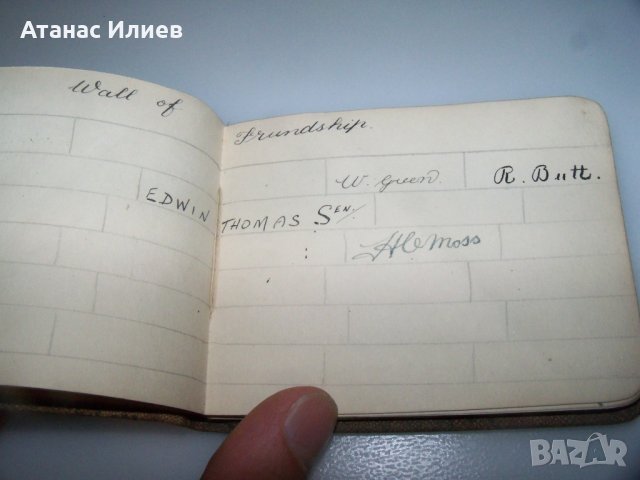 Атанас Илиев
Wall of Friendship.
W. Green. R. Butt.
EDWIN THOMAS SEN/
H C Moss
BAZAR